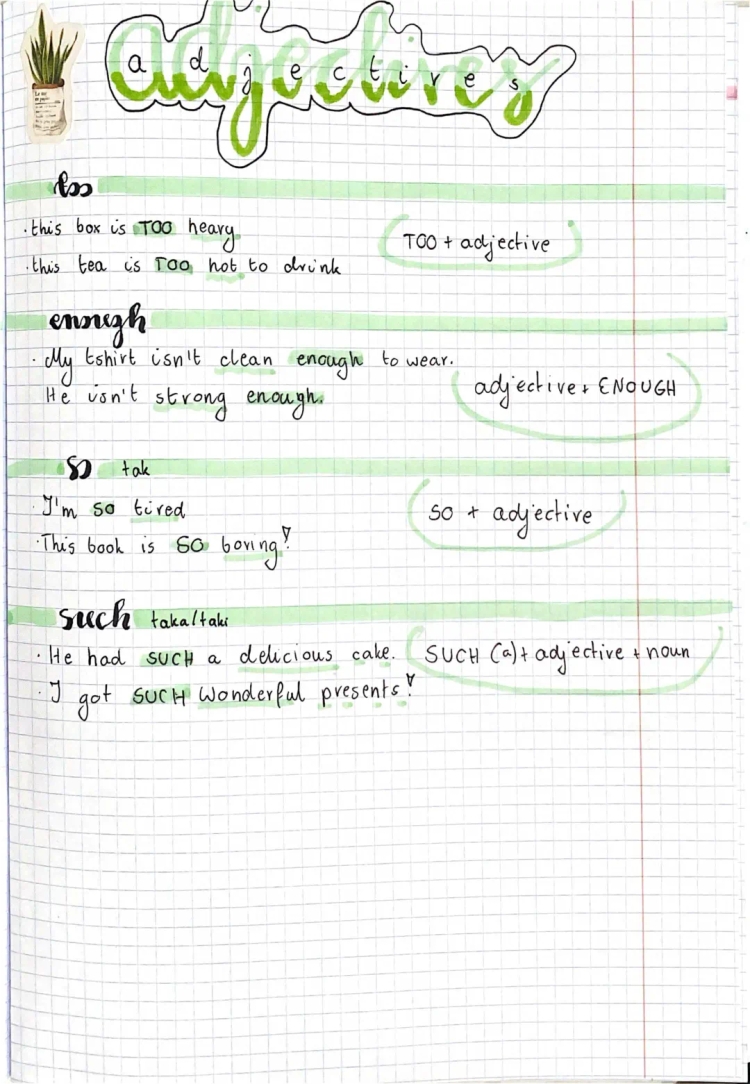 adjectives
too
· this box is TOO heavy.
TOO + adjective
· this tea is TOO hot to drink
enough
· My tshirt isn't clean enough to wear.
adjective + ENOUGH
He isn't strong enough.
so tak
I'm so tired
so + adjective
· This book is SO boring!
such taka/taki
· He had SUCH a delicious cake.
SUCH (a) + adjective + noun
· I got SUCH wonderful presents!